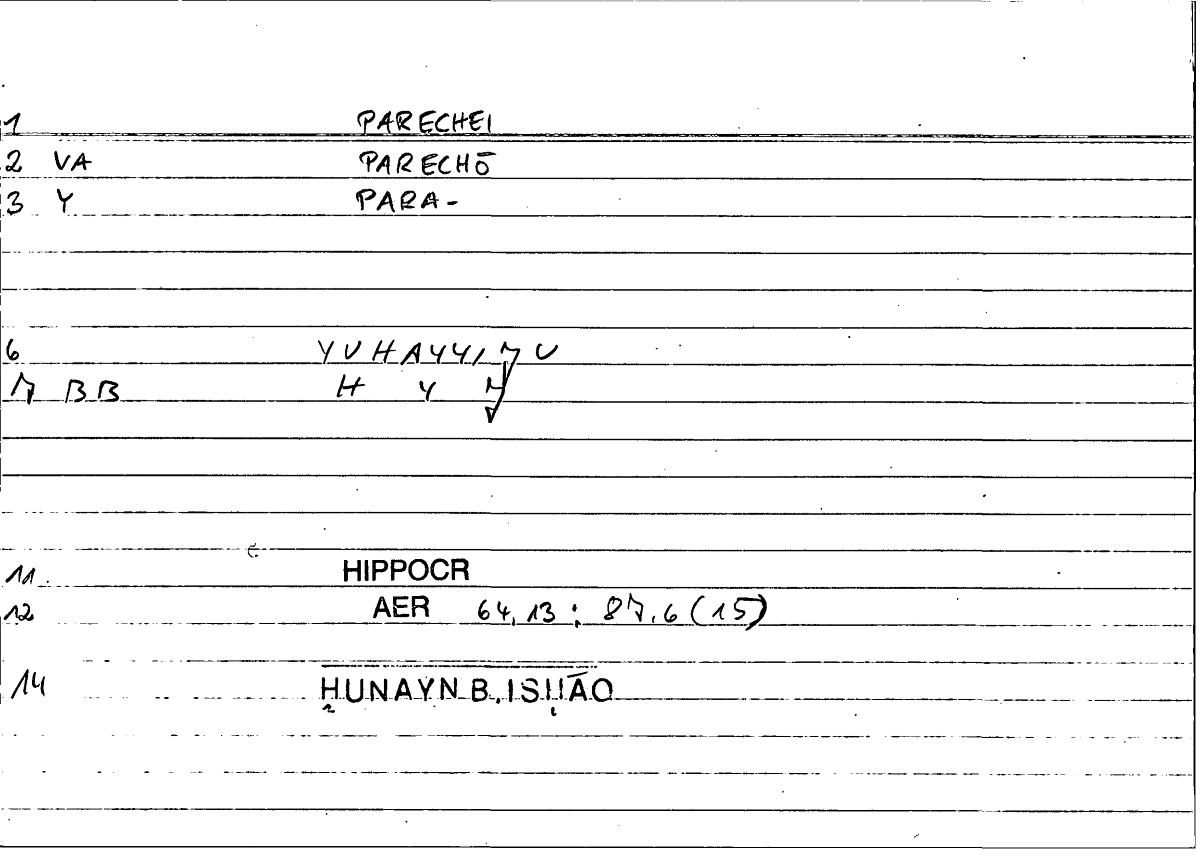 1 PARECHEI
2 VA PARECHŌ
3 Y PARA-
6 YUHAYYI7U
7 BB H Y 7
11 HIPPOCR
12 AER 64,13 ; 87,6 (15)
14 ḤUNAYN B. ISḤĀQ